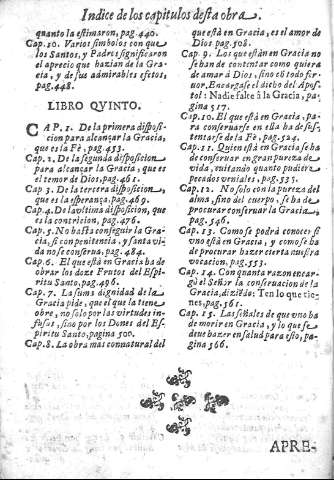 Indice de los capitulos desta obra.
quanto la estimaron, pag. 440.
Cap. 10. Varios simbolos con que
los Santos, y Padres significaron
el aprecio que hazian de la Gra-
cia, y de sus admirables efetos,
pag. 448.
LIBRO QVINTO.
CAP. 1. De la primera disposi-
cion para alcançar la Gracia,
que es la Fè, pag. 453.
Cap. 2. De la segunda disposicion
para alcançar la Gracia, que es
el temor de Dios, pag. 461.
Cap. 3. De la tercera disposicion,
que es la esperança, pag. 469.
Cap. 4. De la vltima disposicion, que
es la contricion, pag. 476.
Cap. 5. No basta conseguir la Gra-
cia, si con penitencia, y santa vi-
da no se conserua, pag. 484.
Cap. 6. El que està en Gracia ha de
obrar los doze Frutos del Espi-
ritu Santo, pag. 496.
Cap. 7. La suma dignidad de la
Gracia pide, que el que la tiene
obre, no solo por las virtudes in-
fusas, sino por los Dones del Es-
piritu Santo, pagina 500.
Cap. 8. La obra mas connatural del
que està en Gracia, es el amor de
Dios pag. 508.
Cap. 9. Los que estàn en Gracia no
se han de contentar como quiera
de amar à Dios, sino cõ todo fir-
uor. Encargase el dicho del Apos-
tol: Nadie falte à la Gracia, pa-
gina 517.
Cap. 10. El que està en Gracia, pa-
ra conseruarse en ella ha de sus-
tentarse de la Fè, pag. 524.
Cap. 11. Quien està en Gracia se ha
de conseruar en gran pureza de
vida, euitando quanto pudiere
pecados veniales, pag. 535.
Cap. 12. No solo con la pureza del
alma, sino del cuerpo, se ha de
procurar conseruar la Gracia,
pag. 546.
Cap. 13. Como se podrà conocer si
vno està en Gracia, y como se ha
de procurar hazer cierta nuestra
vocacion, pag. 553.
Cap. 14. Con quanta razon encar-
gò el Señor la conseruacion de la
Gracia, diziẽdo: Ten lo que tie-
nes, pag. 561.
Cap. 15. Las señales de que vno ha
de morir en Gracia, y lo que se
deue hazer en salud para esso, pa-
gina 566.
APRE-